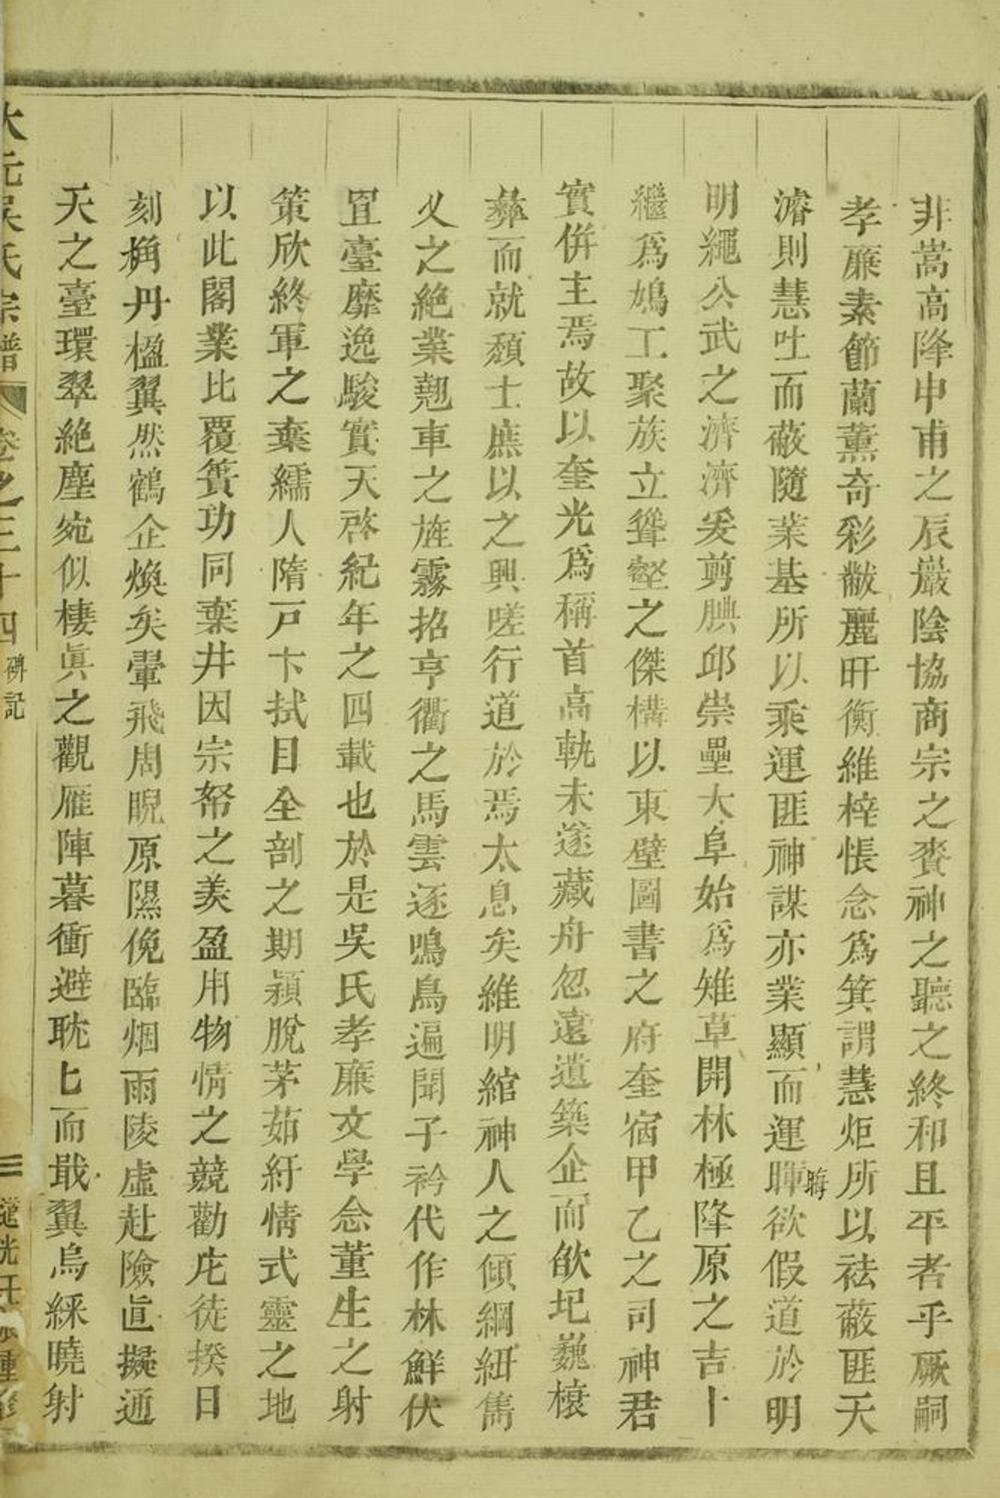 非嵩高降申甫之辰巖陰協商宗之賚神之聽之終和且平者乎厥嗣
孝廉素節蘭薰奇彩黻麗旰衡維梓悵念爲箕謂慧炬所以祛蔽匪天
濬則慧吐而蔽隨業基所以乘運匪神謀亦業顯而運暉欲假道於明
明繩公武之濟濟爰剪腆邱崇壘大阜始爲雉草開林極降原之吉卜
繼爲鳩工聚族立聳壑之傑構以東壁圖書之府奎宿甲乙之司神君
實併主焉故以奎光爲稱首高軌未遂藏舟忽遠遺築企而欲圮巍榱
彝而就頹士庶以之興嗟行道於焉太息矣維明綰神人之傾綱紐雋
乂之絕業翹車之旌霧招亨衢之馬雲逐鳴鳥遍聞子衿代作林鮮伏
罝臺靡逸駿實天啓紀年之四載也於是吳氏孝廉文學念董生之射
策欣終軍之棄繻人隋戸卞拭目全剖之期穎脫茅茹紆情式靈之地
以此閣業比覆簣功同棄井因宗帑之羨盈用物情之競勸庀徒揆日
刻桷丹楹翼然鶴企煥矣翬飛周睨原隰俛臨烟雨陵虛赴險眞擬通
天之臺環翠絶塵宛似棲眞之觀雁陣暮衝避耽匕而戢翼烏綵曉射
大元吳氏宗譜 卷之三十四 碑記 三